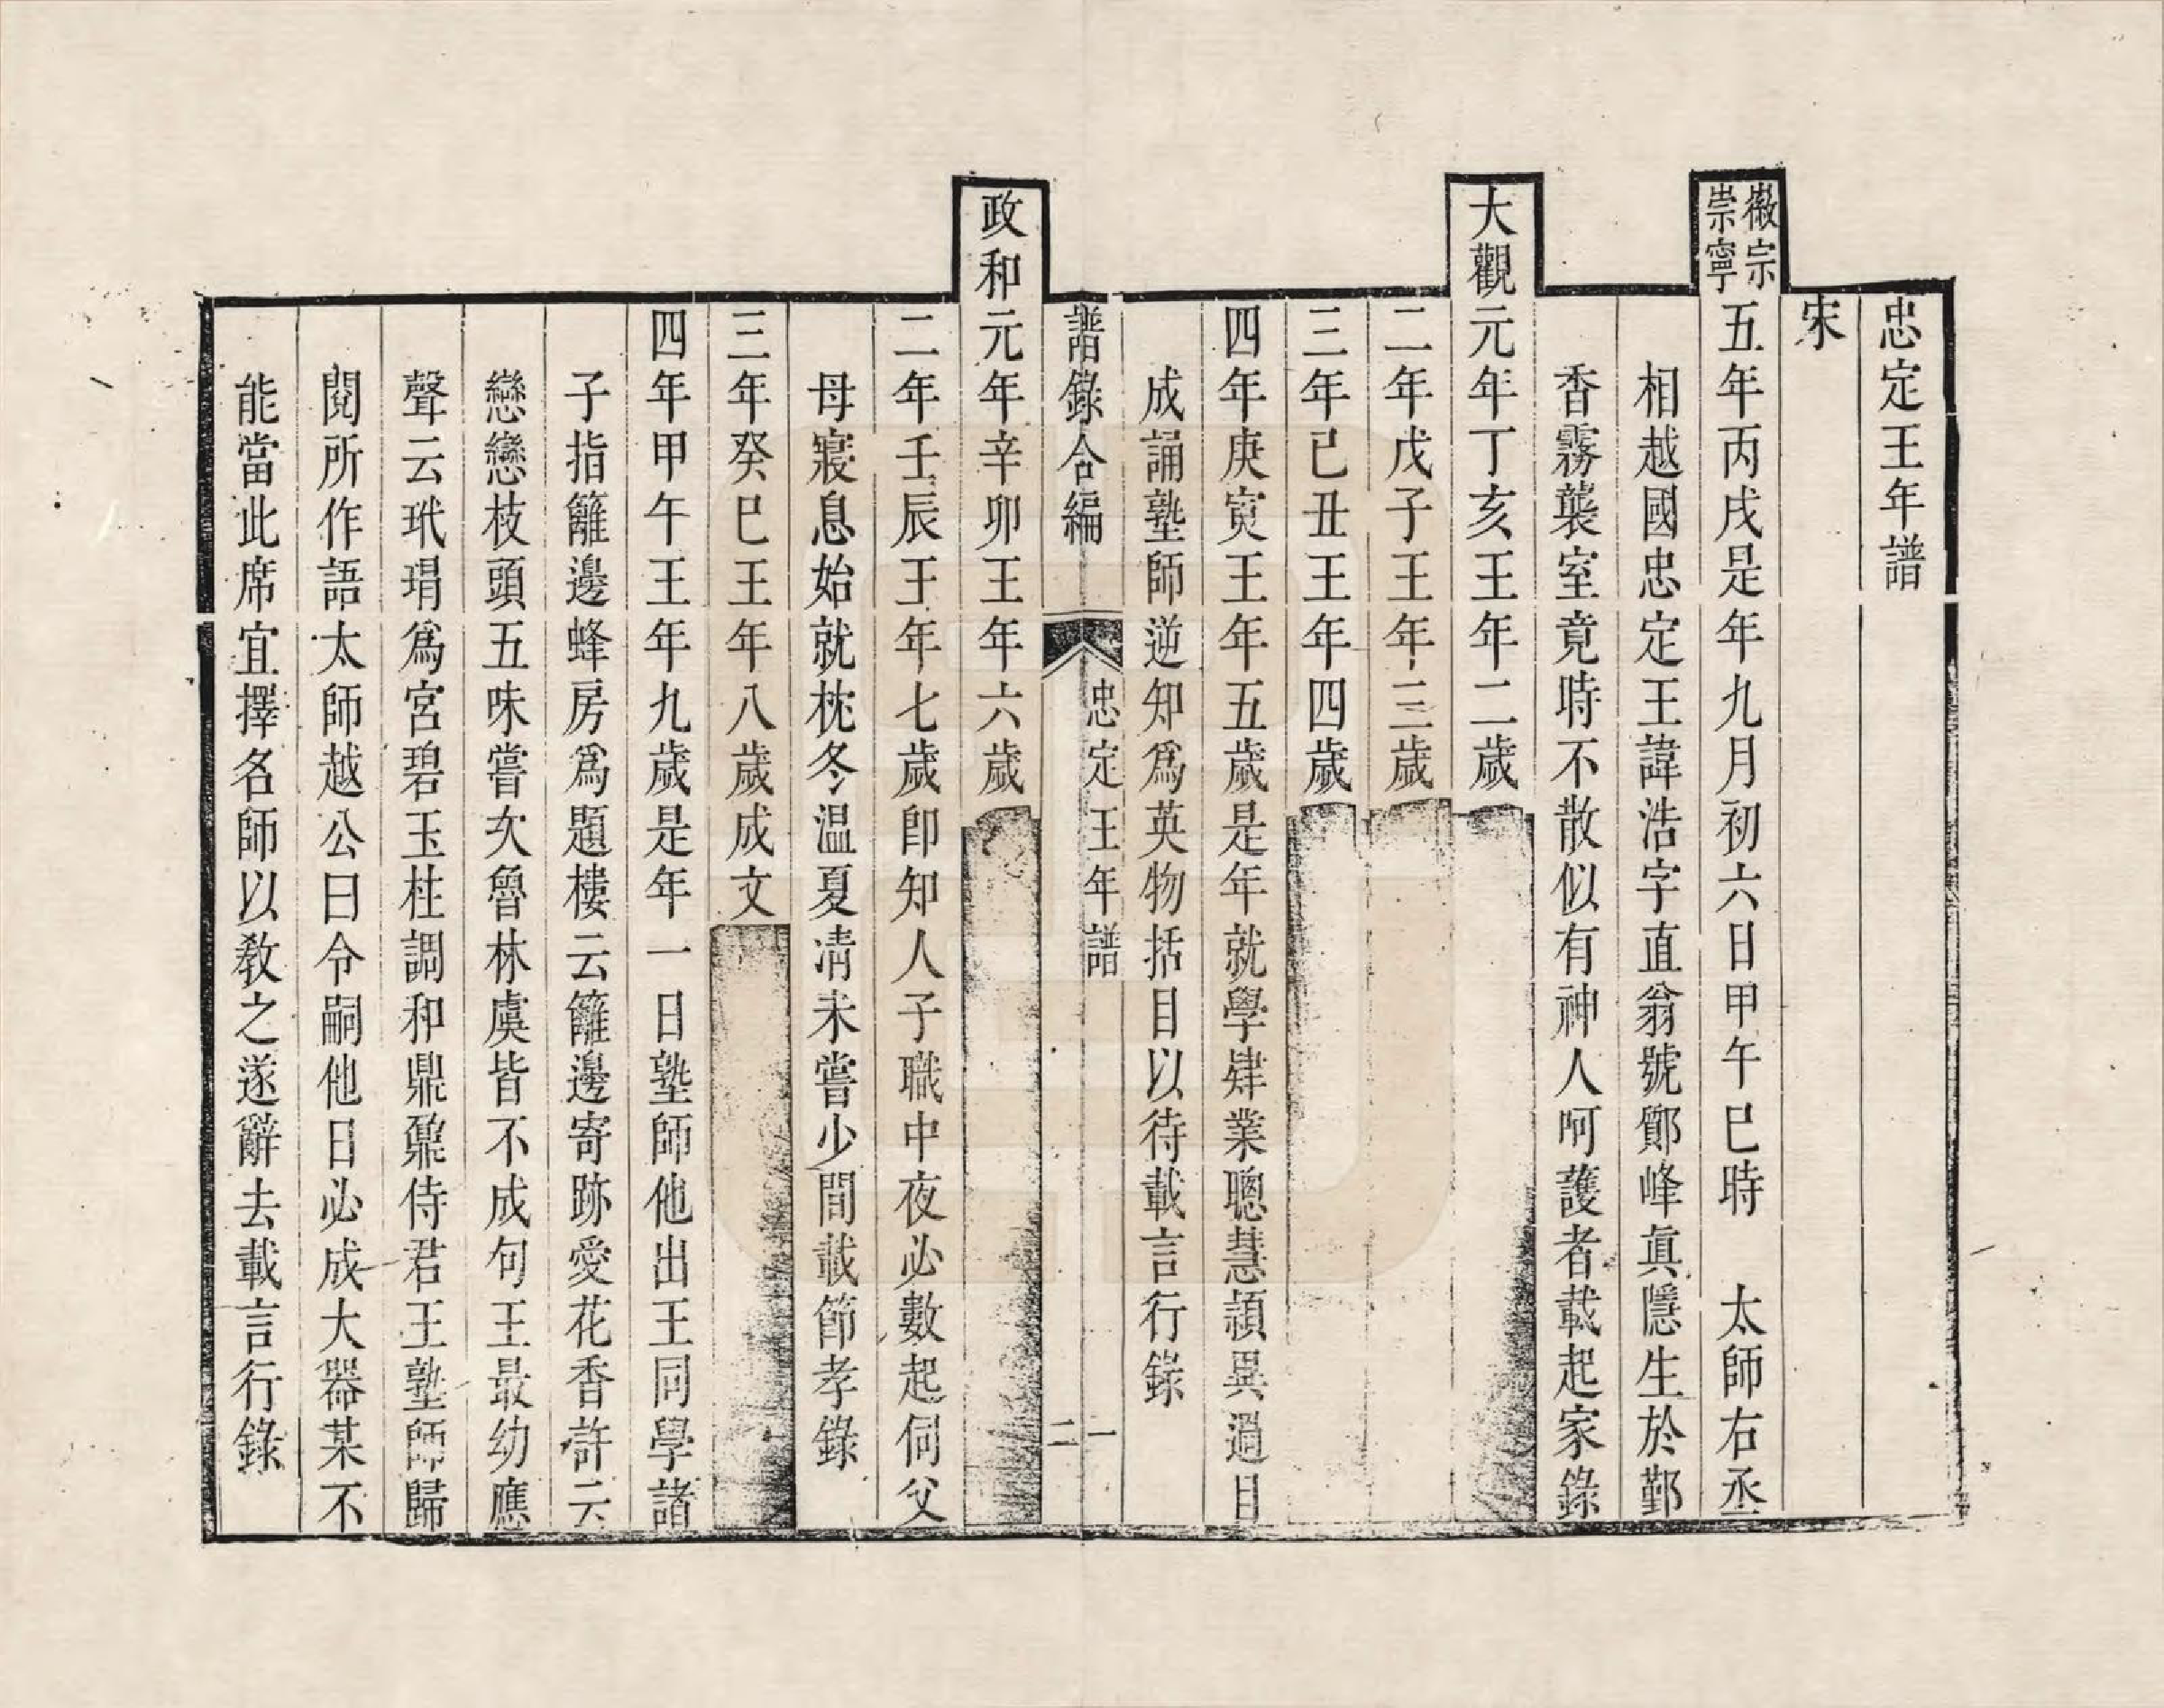 忠定王年譜
宋
徽宗崇寧五年丙戌是年九月初六日甲午巳時　太師右丞
相越國忠定王諱浩字直翁號鄮峰眞隱生於鄞
香霧襲室竟時不散似有神人呵護者載起家錄
大觀元年丁亥王年二歲
二年戊子王年三歲
三年己丑王年四歲
四年庚寅王年五歲是年就學肄業聰慧頴異過目
成誦塾師逆知爲英物括目以待載言行錄
譜錄合編
忠定王年譜
一
二
政和元年辛卯王年六歲
二年壬辰王年七歲卽知人子職中夜必數起伺父
母寢息始就枕冬溫夏凊未嘗少間載節孝錄
三年癸巳王年八歲成文
四年甲午王年九歲是年一日塾師他出王同學諸
子指籬邊蜂房爲題樓云籬邊寄跡愛花香許云
戀戀枝頭五味嘗次魯林虞皆不成句王最幼應
聲云玳瑁爲宮碧玉柱調和鼎鼐侍君王塾師歸
閱所作語太師越公曰令嗣他日必成大器某不
能當此席宜擇名師以敎之遂辭去載言行錄